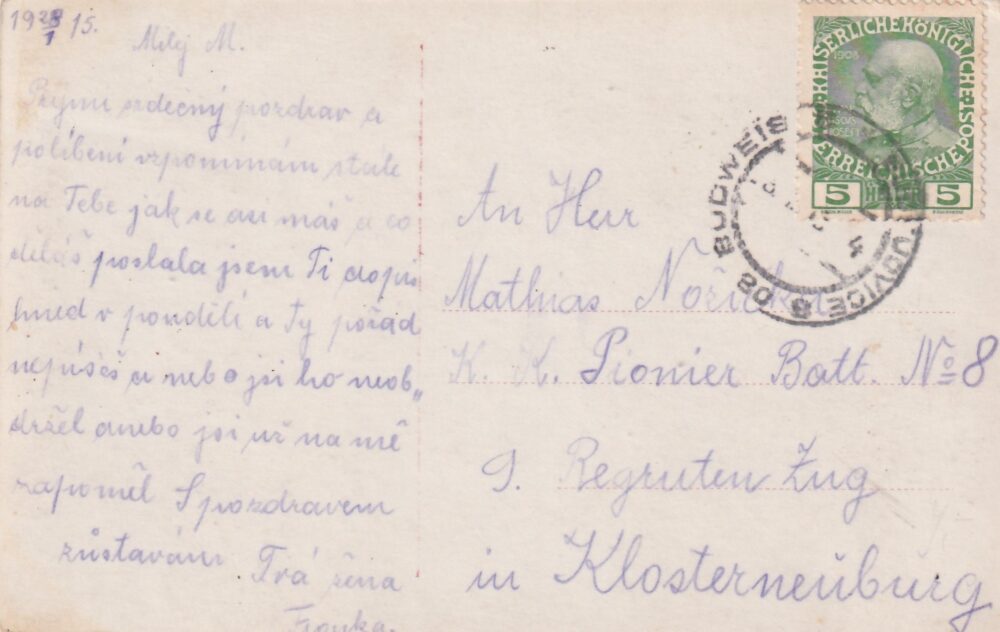 19 28/1 15.
Milý M.
Přijmi srdečný pozdrav a
políbení vzpomínám stále
na Tebe jak se asi máš a co
děláš poslala jsem Ti dopis
hned v pondělí a Ty pořád
nepíšeš a nebo jsi ho neob„
držel anebo jsi už na mě
zapoměl S pozdravem
zůstavám Tvá žena
An Herr
Mathias
K. K. Pionier Batt. No 8
Regruten Zug
in Klosterneuburg
KAISERLICHE KÖNIGLICHE
ÖSTERREICHISCHE POST
1908
5 5
BUDWEIS
8 08